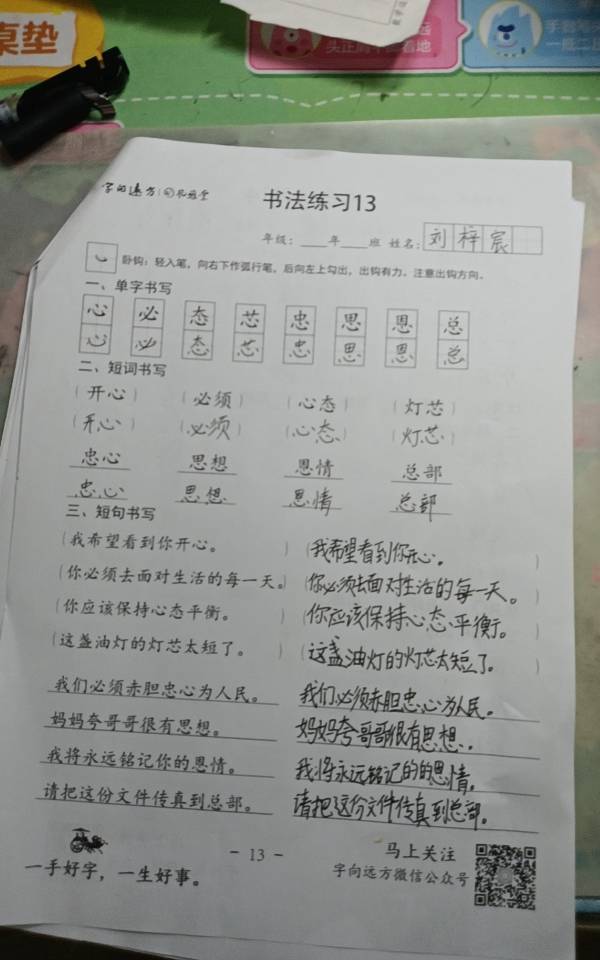 桌垫
字向远方
书法练习13
年级：____年____班 姓名：刘梓宸
卧钩：轻入笔，向右下作弧行笔，后向左上勾出，出钩有力。注意出钩方向。
一、单字书写
心 必 态 芯 忠 思 恩 总
心 必 态 芯 忠 思 恩 总
二、短词书写
（开心） （必须） （心态） （灯芯）
（开心） （必须） （心态） （灯芯）
忠心 思想 恩情 总部
忠心 思想 恩情 总部
三、短句书写
（我希望看到你开心。 ） （我希望看到你开心。 ）
（你必须去面对生活的每一天。） （你必须去面对生活的每一天。 ）
（你应该保持心态平衡。 ） （你应该保持心态平衡。 ）
（这盏油灯的灯芯太短了。 ） （这盏油灯的灯芯太短了。 ）
我们必须赤胆忠心为人民。 我们必须赤胆忠心为人民。
妈妈夸哥哥很有思想。 妈妈夸哥哥很有思想。
我将永远铭记你的恩情。 我将永远铭记的的恩情。
请把这份文件传真到总部。 请把这份文件传真到总部。
- 13 -
马上关注
一手好字，一生好事。
字向远方微信公众号